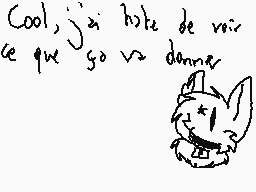 Cool, j'ai hate de voir
ce que ça va donner